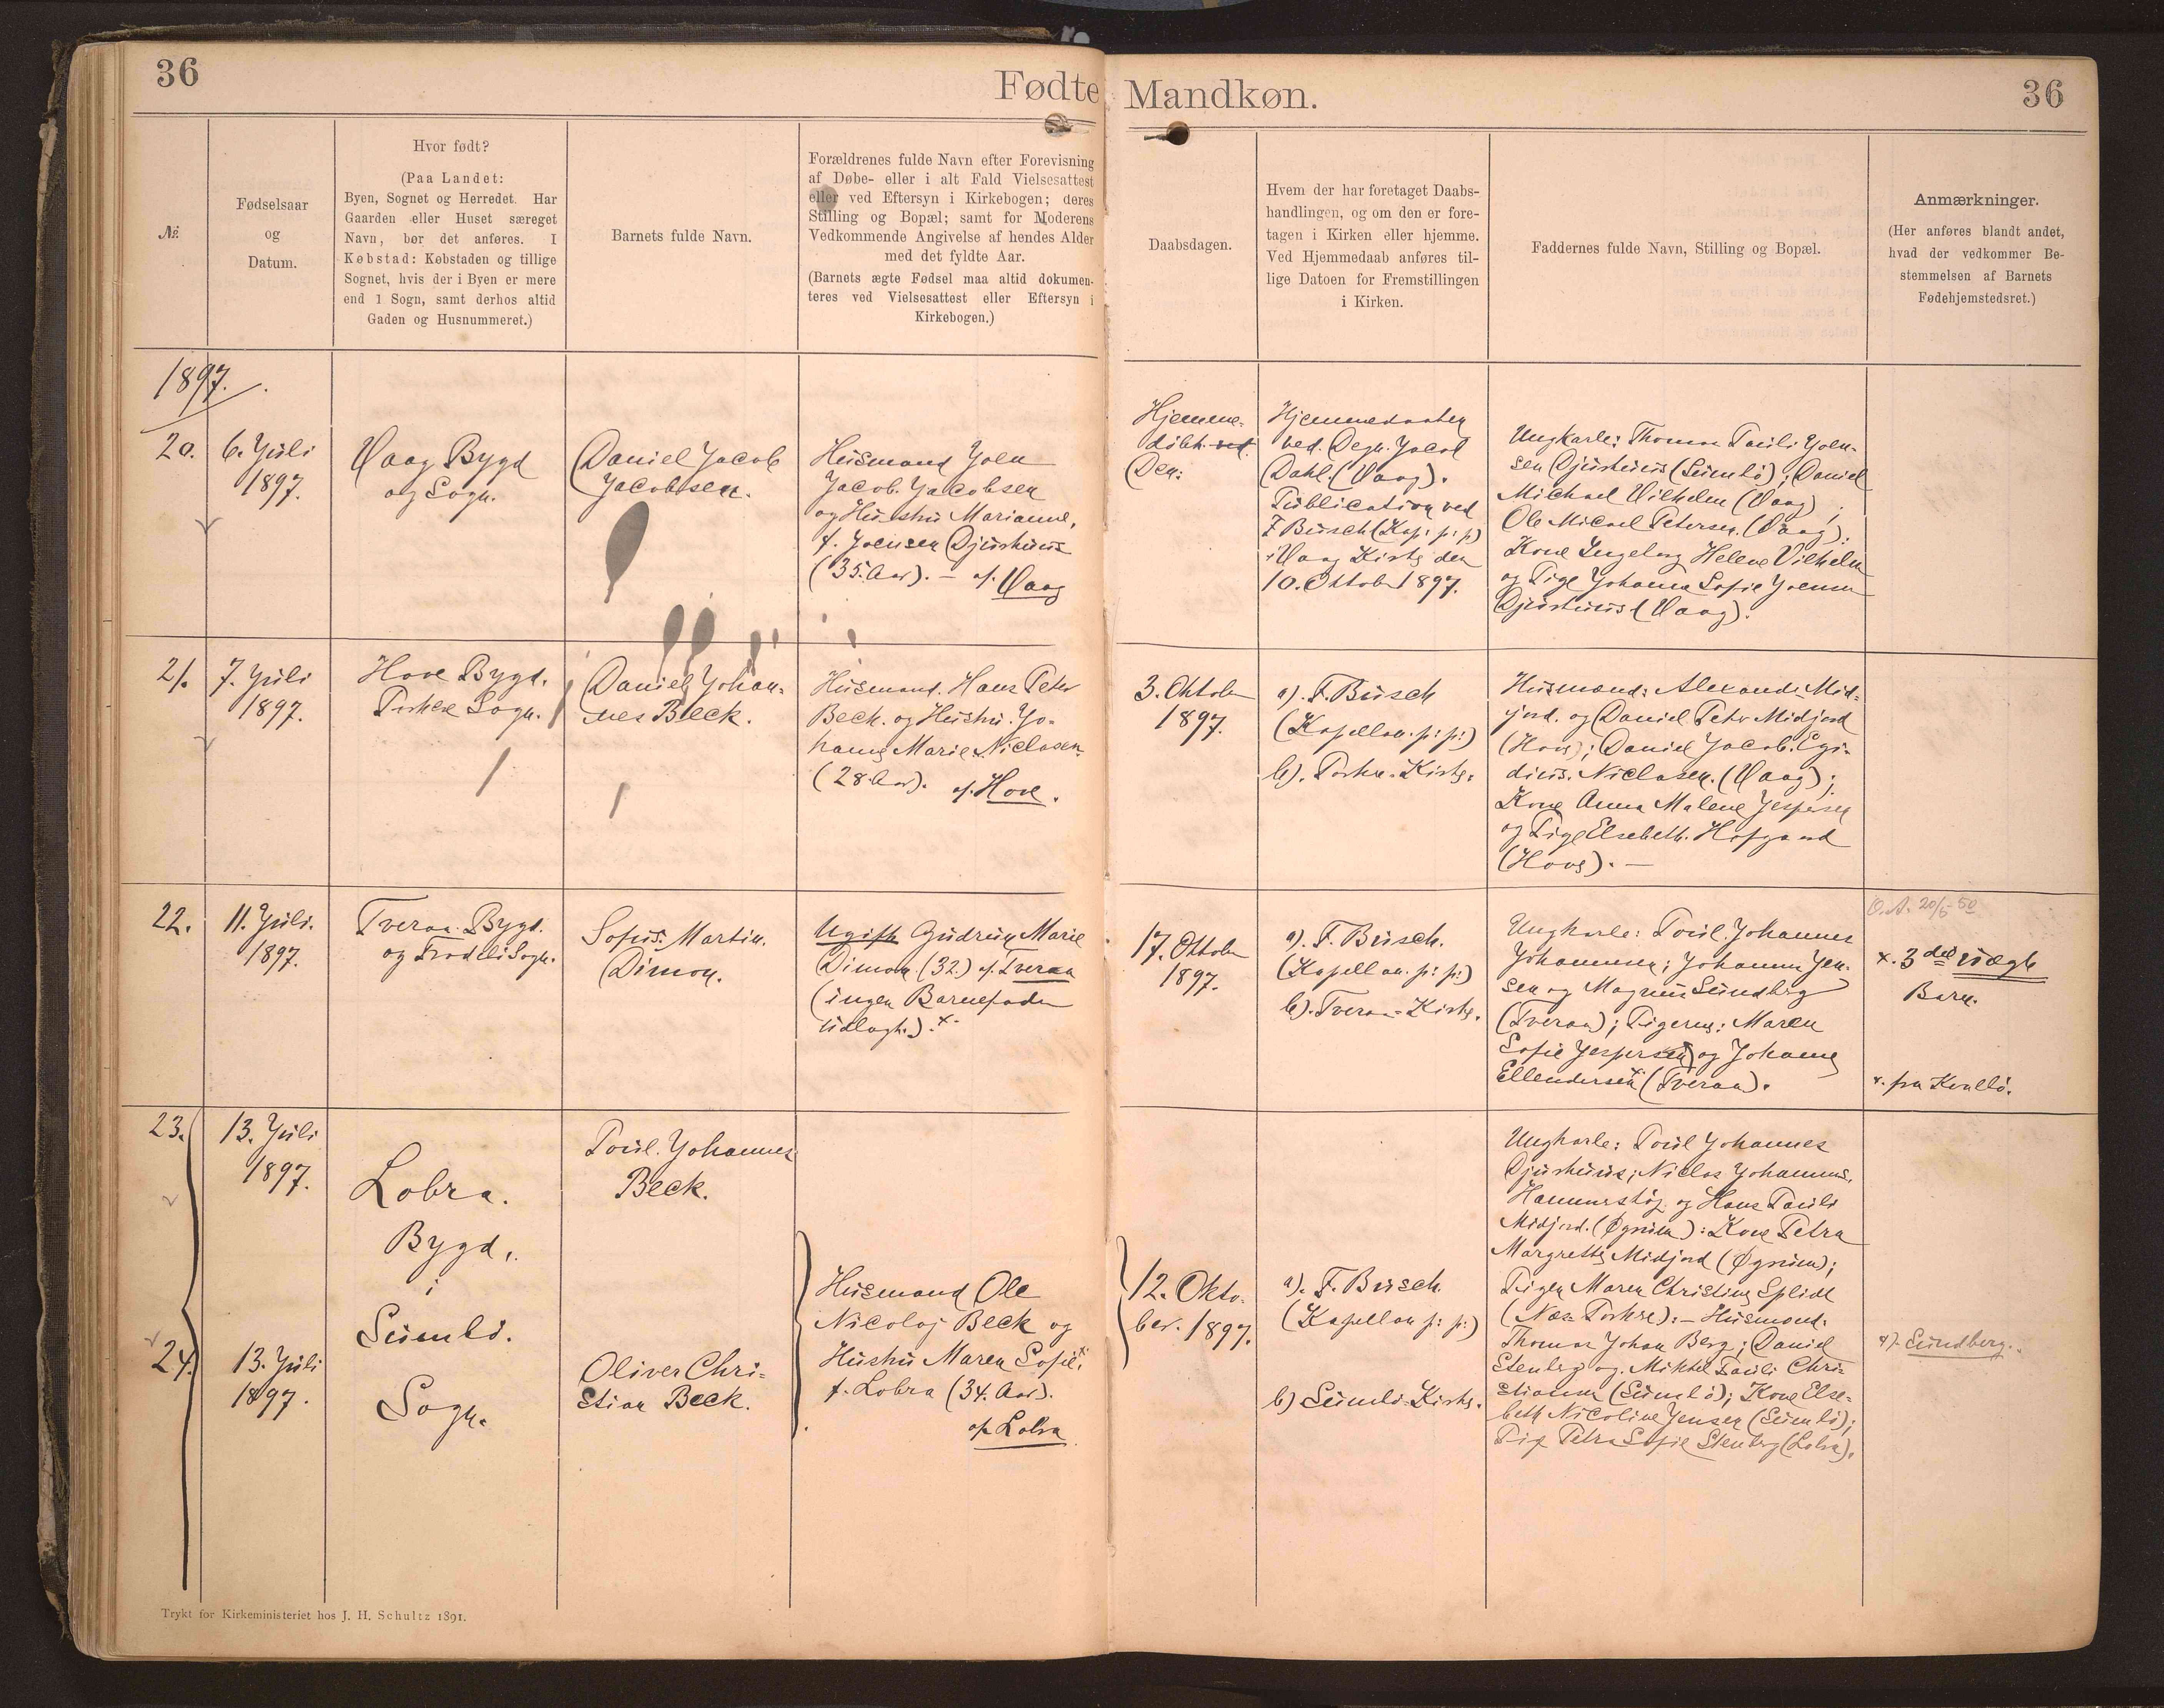 36
Fødte
Mandkøn.
36
№
Fødselsaar
og
Datum.
Hvor født?
(Paa Landet:
Byen, Sognet og Herredet. Har
Gaarden eller Huset særeget
Navn, bør det anføres. I
Købstad: Købstaden og tillige
Sognet, hvis der i Byen er mere
end 1 Sogn, samt derhos altid
Gaden og Husnummeret.)
Barnets fulde Navn.
Forældrenes fulde Navn efter Forevisning
af Døbe- eller i alt Fald Vielsesattest
eller ved Eftersyn i Kirkebogen; deres
Stilling og Bopæl; samt for Moderens
Vedkommende Angivelse af hendes Alder
med det fyldte Aar.
(Barnets ægte Fødsel maa altid dokumen-
teres ved Vielsesattest eller Eftersyn i
Kirkebogen.)
Daabsdagen.
Hvem der har foretaget Daabs-
handlingen, og om den er fore-
tagen i Kirken eller hjemme.
Ved Hjemmedaab anføres til-
lige Datoen for Fremstillingen
i Kirken.
Faddernes fulde Navn, Stilling og Bopæl.
Anmærkninger.
(Her anføres blandt andet,
hvad der vedkommer Be-
stemmelsen af Barnets
Fødehjemstedsret.)
1897.
20.
6. Juli
1897.
Vaag Bygd
og Sogn.
Daniel Jacob
Jacobsen.
Husmand Joen
Jacob Jacobsen
og Hustru Marianne,
f. Joensen Djurhuus
(35. Aar). - af Vaag
Hjemme-
døbt ved
Den:
Hjemmedaaben
ved Degn Jacob
Dahl (Vaag).
Publication ved
F Busch (Kap: p: p)
i Vaag Kirke den
10. Oktober 1897.
Ungkarle: Thomas Pauli Joen-
sen Djurhuus (Sumbø); Daniel
Michael Vilhelm (Vaag);
Ole Micael Petersen (Vaag);
Kone Ingeborg Helene Vilhelm
og Pige Johanna Sofie Joensen
Djurhuus (Vaag).
21.
7. Juli
1897.
Hove Bygd.
Porkere Sogn.
Daniel Johan-
nes Beck.
Husmand Hans Peter
Beck og Hustru Jo-
hanne Marie Niclasen
(28. Aar). af Hove.
3. Oktober
1897.
a). F. Busch
(Kapellan p: p:)
b). Porkere-Kirke.
Husmænd: Alexander Mid-
jord. og Daniel Peter Midjord
(Hove); Daniel Jacob Egi-
dius Niclasen. (Vaag);
Kone Anna Malene Jespersen
og Pige Elsebeth Hofgaard
(Hove). -
22.
11. Juli.
1897.
Tveraa Bygd.
og Frodebø Sogn.
Sofus Martin.
Dimon.
Ugift Gudrun Marie
Dimon (32.) af Tveraa
(ingen Barnefader
udlagt.). x.
17. Oktober
1897.
a). F. Busch.
(Kapellan p: p:)
b). Tveraa-Kirke.
Ungkarle: Poul Johannes
Johannesen; Johannes Jen-
sen og Magnus Sundberg
(Tveraa); Pigerne: Maren
Sofie Jespersen og Johanne
Ellendersen x (Tveraa).
O.A. 20/5 50
x. 3die uægte
Barn.
x. fra Kvalbø.
23.
13. Juli
1897.
Lobra.
Bygd.
i
Sumbø.
Sogn.
Poul Johannes
Beck.
24.
13. Juli
1897.
Oliver Chri-
stian Beck.
Husmand Ole
Nicolaj Beck og
Hustru Maren Sofie x,
f. Lobra (34. Aar).
af Lobra
12. Okto-
ber. 1897.
a). F. Busch.
(Kapellan p: p:)
b) Sumbø-Kirke.
Ungkarle: Poul Johannes
Djurhuus; Niclas Johannes.
og Hans Pauli
Midjord. (Øgnum); Kone Petra
Margrethe Midjord (Øgnum);
Pigen Maren Christine Splidt
(Næs Porkere). - Husmænd:
Thomas Johan Berg; Daniel
Stenberg og Mikkel Pauli Chri-
stiansen (Sumbø); Kone Else-
beth Nicoline Jensen (Sumbø);
Pige Petra Sofie Stenberg (Lobra).
x). Sundberg.
Trykt for Kirkeministeriet hos J. H. Schultz 1891.